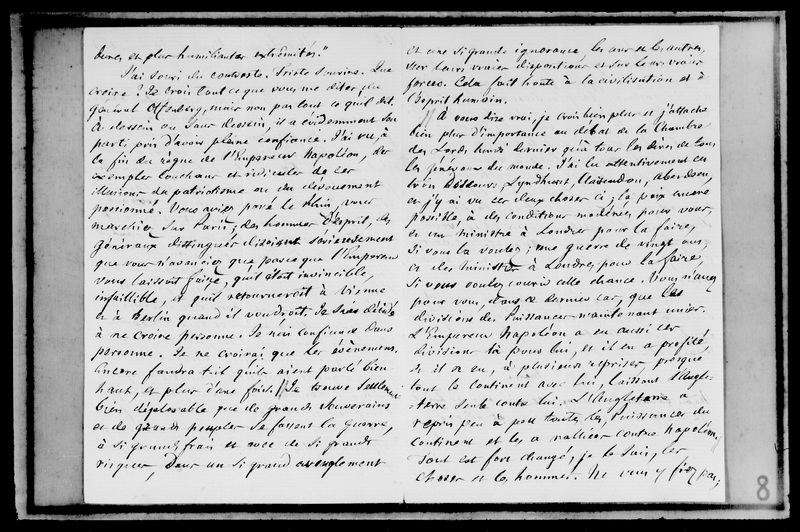 dures et plus humiliantes extrémités."
J'ai souri du contraste. Triste sourire. Que
croire? Je crois tout ce que vous me dites du
général Offenberg, mais non pas tout ce qu'il dit.
à dessein ou sans dessein, il a évidemment son
parti pris d'avoir pleine confiance. J'ai vu, à
la fin du règne de l'Empereur Napoléon, des
exemples touchans et ridicules de ces
illusions du patriotisme ou du dévouement
passionné. Vous aviez passé le Rhin, vous
marchiez sur Paris; des hommes d'esprit, des
généraux distingués disoient sérieusement
que vous n'avanciez que parce que l'Empereur
vous laissoit faire, qu'il étoit invincible,
infaillible, et qu'il retourneroit à Vienne
et à Berlin quand il voudroit. Je suis décidé
à ne croire personne. Je n'ai confiance dans
personne. Je ne croirai que les évènemens.
Encore faudra-t-il qu'ils aient parlé bien
haut, et plus d'une fois. Je trouve seulement
bien déplorable que de grands souverains
et de grands peuples se fassent la guerre,
à si grands frais et avec de si grands
risques, dans un si grand aveuglement
et une si grande ignorance les uns et les autres,
sur leurs vraies dispositions et sur leurs vraies
forces. Cela fait honte à la civilisation et à
l'esprit humain.
À vous dire vrai, je crois bien plus et j'attache
bien plus d'importance au débat de la Chambre
des Lords lundi dernier qu'à tous les dires de tous
les généraux du monde. J'ai lu attentivement ces
trois discours, Lyndhurst, Clarendon, Aberdeen,
et j'y ai vu ces deux choses ci; la paix encore
possible, à des conditions modérées pour vous,
et un ministre à Londres pour la faire,
si vous la voulez; une guerre de vingt ans,
et des ministres à Londres pour la faire,
si vous voulez courir cette chance. Vous n'avez
pour vous, dans ce dernier cas, que les
divisions des Puissances maintenant unies.
L'Empereur Napoléon a eu aussi ces
divisions là pour lui, et il en a profité
et il a eu, à plusieurs reprises, presque
tout le continent avec lui, laissant l'Angle-
terre seule contre lui. L'Angleterre a
repris peu à peu toutes les Puissances du
Continent et les a ralliées contre Napoléon.
Tout est fort changé, je le sais, les
choses et les hommes. Ne vous y fiez pas;
8